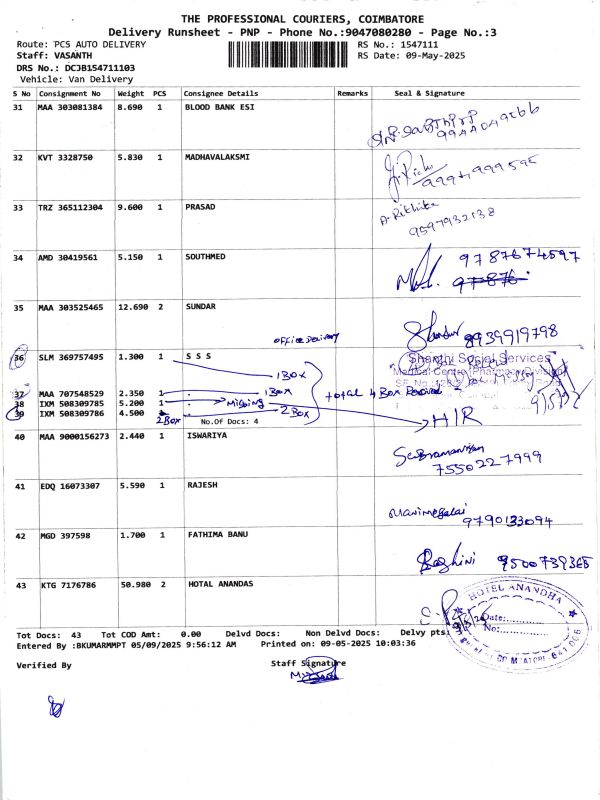 THE PROFESSIONAL COURIERS, COIMBATORE
Delivery Runsheet - PNP - Phone No.:9047080280 - Page No.:3
Route: PCS AUTO DELIVERY
RS No.: 1547111
Staff: VASANTH
RS Date: 09-May-2025
DRS No.: DCJB154711103
Vehicle: Van Delivery
S No Consignment No Weight PCS Consignee Details Remarks Seal & Signature
31 MAA 303081384 8.690 1 BLOOD BANK ESI
32 KVT 3328750 5.830 1 MADHAVALAKSMI
99994999595
33 TRZ 365112304 9.600 1 PRASAD
A. Rithika
9597932138
34 AMD 30419561 5.150 1 SOUTHMED
9787674597
35 MAA 303525465 12.690 2 SUNDAR
8939919798
office Delivery
36 SLM 369757495 1.300 1 S S S
Shanthi Social Services
Medical Centre Pharmacy Division
1 Box
37 MAA 707548529 2.350 1 1 Box
total 4 Box Received
38 IXM 508309785 5.200 1 Missing
39 IXM 508309786 4.500 2 Box 2 Box
No.Of Docs: 4
H/R
40 MAA 9000156273 2.440 1 ISWARIYA
Subramaniyan
7550227999
41 EDQ 16073307 5.590 1 RAJESH
Manimegalai
9790133094
42 MGD 397598 1.700 1 FATHIMA BANU
Raghini 9500739365
43 KTG 7176786 50.980 2 HOTAL ANANDAS
HOTEL ANANDHA
Date:
No:
Tot Docs: 43 Tot COD Amt: 0.00 Delvd Docs: Non Delvd Docs: Delvy pts:
Entered By :BKUMARMMPT 05/09/2025 9:56:12 AM Printed on: 09-05-2025 10:03:36
Verified By
Staff Signature